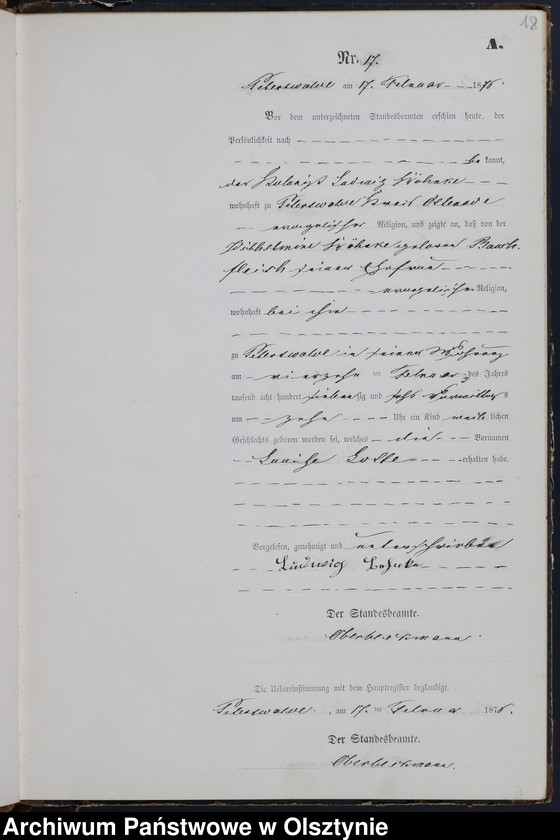 18
A.
Nr. 17.
Peterswalde am 17. Februar 1876.
Vor dem unterzeichneten Standesbeamten erschien heute, der
Persönlichkeit nach
be kannt,
der Ludwig
wohnhaft zu Peterswalde Kreis Osterode
evangelischer Religion, und zeigte an, daß von der
Wilhelmine geboren
fleisch seiner Ehefrau
evangelischer Religion,
wohnhaft bei ihm
zu Peterswalde in seiner Wohnung
am vierzehn ten Februar des Jahres
tausend acht hundert siebenzig und sechs Vormittags
um zehn Uhr ein Kind weib lichen
Geschlechts geboren worden sei, welches die Vornamen
Louise Lotte erhalten habe.
Vorgelesen, genehmigt und unterschrieben
Ludwig
Der Standesbeamte.
Oberbeckmann.
Die Uebereinstimmung mit dem Hauptregister beglaubigt.
Peterswalde, am 17. ten Februar 1876.
Der Standesbeamte.
Oberbeckmann.
Archiwum Państwowe w Olsztynie